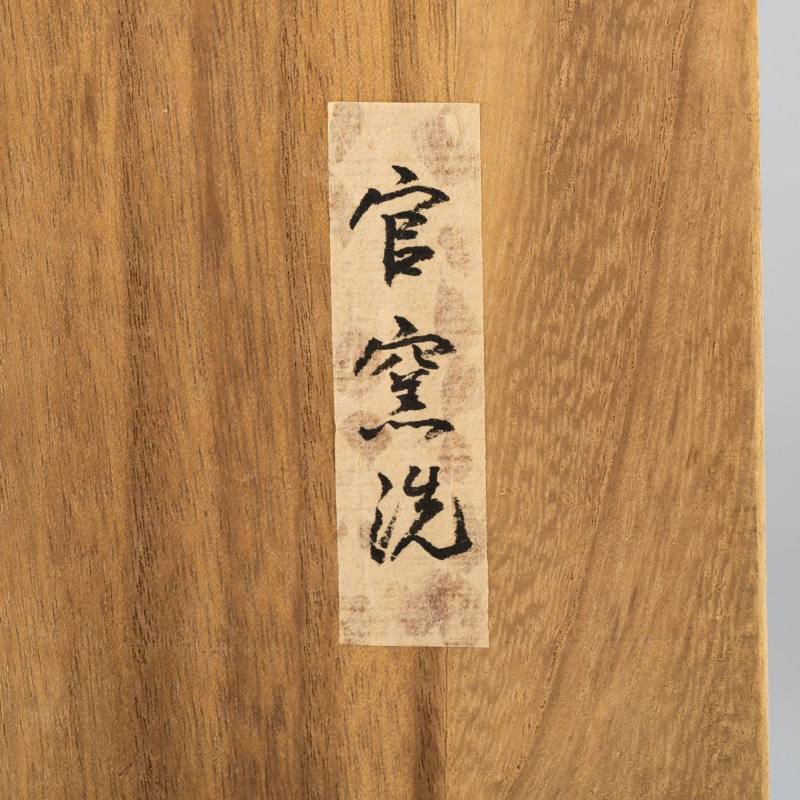 官窯洗